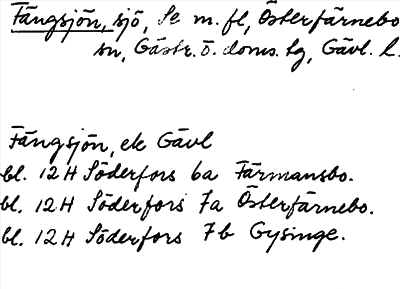 Fängsjön, sjö, Se m. fl, Österfärnebo
sn, Gästr. ö. doms. lg, Gävl. l.
Fängsjön, ek Gävl
bl. 12 H Söderfors 6a Färmansbo.
bl. 12 H Söderfors 7a Österfärnebo.
bl. 12 H Söderfors 7b Gysinge.